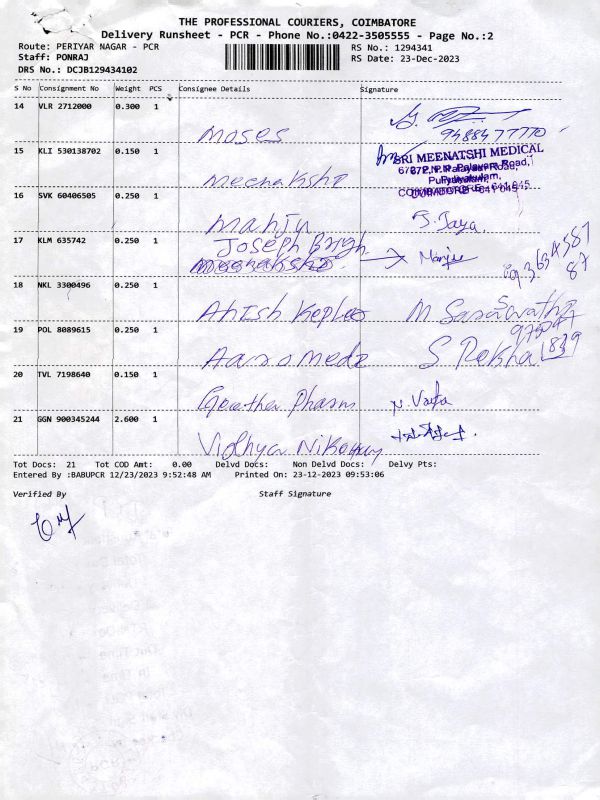 THE PROFESSIONAL COURIERS, COIMBATORE
Delivery Runsheet - PCR - Phone No.:0422-3505555 - Page No.:2
Route: PERIYAR NAGAR - PCR
RS No.: 1294341
Staff: PONRAJ
RS Date: 23-Dec-2023
DRS No.: DCJB129434102
S No Consignment No Weight PCS Consignee Details Signature
14 VLR 2712000 0.300 1
Moses
9488477770
15 KLI 530138702 0.150 1
SRI MEENATSHI MEDICAL
Meenakshi
16 SVK 60406505 0.250 1
Manju
S. Jaya.
17 KLM 635742 0.250 1
Joseph
Manju
18 NKL 3300496 0.250 1
M Saraswathi
19 POL 8089615 0.250 1
S Rekha
20 TVL 7198640 0.150 1
Geetha Pharm
21 GGN 900345244 2.600 1
Vidhya
Tot Docs: 21 Tot COD Amt: 0.00 Delvd Docs: Non Delvd Docs: Delvy Pts:
Entered By :BABUPCR 12/23/2023 9:52:48 AM Printed On: 23-12-2023 09:53:06
Verified By Staff Signature